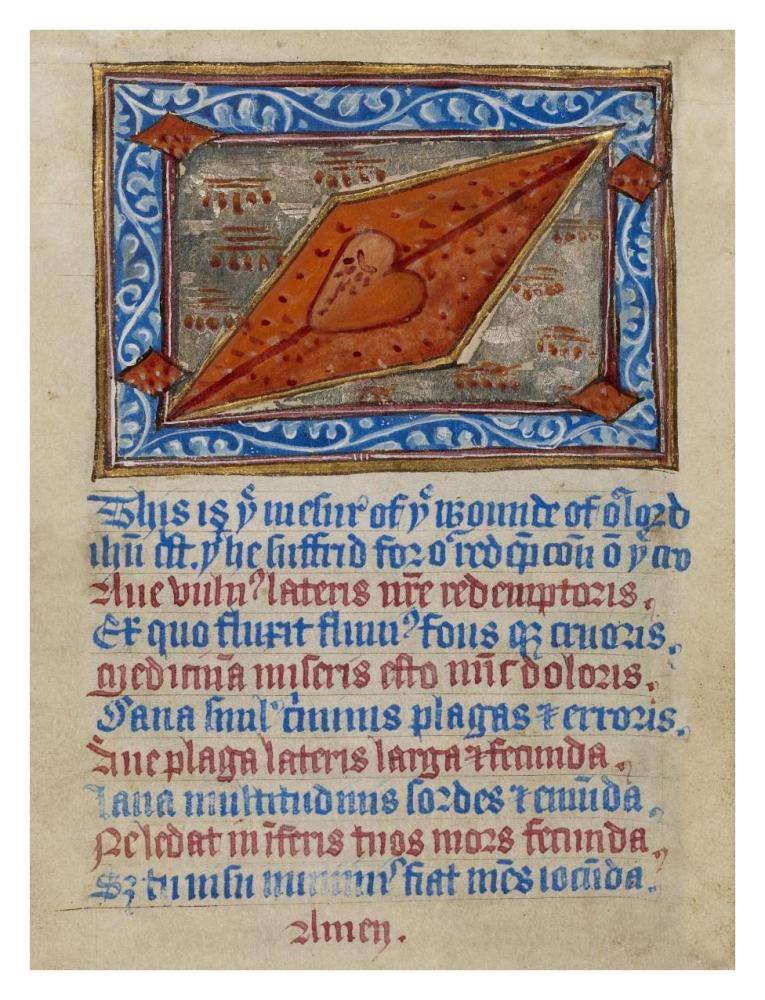 This is yͤ mesurͤ of yͤ wounde of oͬ lord
ihū cſt. yͭ he suffrid for oͬ redēpcōn ō yͤ cro
Aue vulnꝰ lateris nr̄e redemptoris.
Ex quo fluxit flumꝰ fons qꝫ cruoris.
Medicina miseris esto doloris.
Sana plagas ⁊ erroris.
Aue plaga lateris larga ⁊ fecunda.
laua multitudinis sordes ⁊ emūda.
Ne ledat inīferis tuos mors fecunda.
Sꝫ tu fiat mēs iocūda.
Amen.